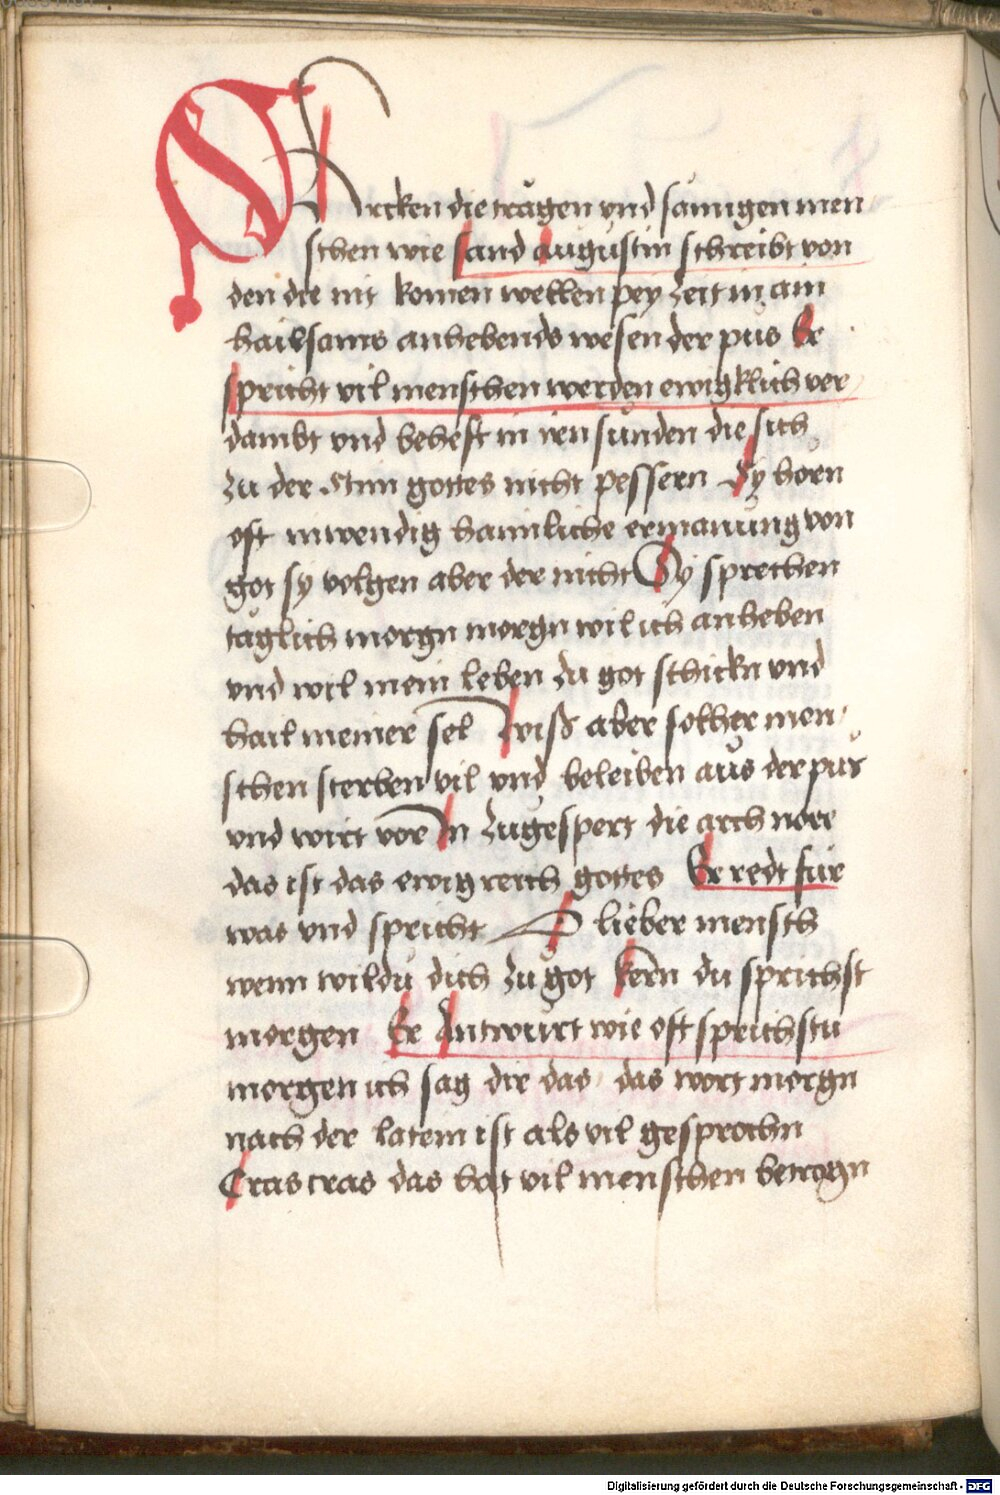 Mircken die trägen vnd säumigen men
schen wie sand augustin schreibt von
den die nit komen wellen pey zeit in ain
hailsams anhebends wesen der pus Er
spricht vil menschen werden ewigklich ver
dambt vnd beheft in iren sünden die sich
zu der stim gottes nicht pessern Sy hörn
oft inwendig haimliche ermanung von
got sy volgen aber der nicht Sy sprechen
täglich morgn morgn wil ich anheben
vnd wil mein leben zu got schickn vnd
hail meiner sel Wiß aber solher men
schen sterben vil vnd beleiben aus der pus
vnd wirt vor In zugespert die arch noee
das ist das ewig reich gottes Er redt für
was vnd spricht O lieber mensch
wenn wildu dich zu got kern du sprichst
morgen Er Antwurt wie oft sprichstu
morgen ich sag dir das das wort morgn
nach der latein ist als vil gesprochn
Cras cras das hat vil menschen betrogn
Digitalisierung gefördert durch die Deutsche Forschungsgemeinschaft - DFG